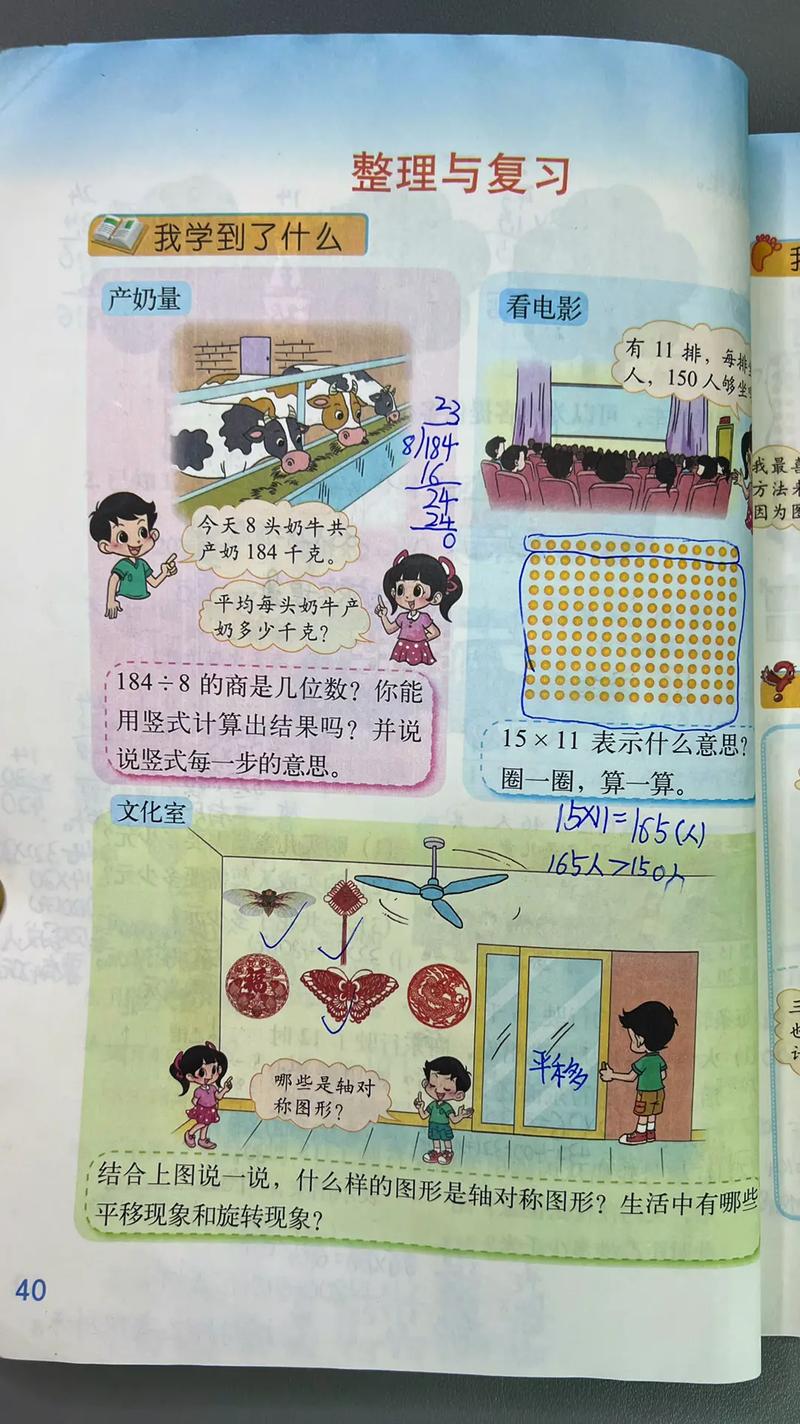 整理与复习
我学到了什么
产奶量
23
8)184
16
24
24
0
今天 8 头奶牛共
产奶 184 千克。
平均每头奶牛产
奶多少千克？
184÷8 的商是几位数？你能
用竖式计算出结果吗？并说
说竖式每一步的意思。
看电影
有 11 排，每排
人，150 人够坐
15×11 表示什么意思？
圈一圈，算一算。
15×11=165(人)
165人>150人
文化室
福
平移
哪些是轴对
称图形？
结合上图说一说，什么样的图形是轴对称图形？生活中有哪些
平移现象和旋转现象？
40
我最喜
方法来
因为图
三
也